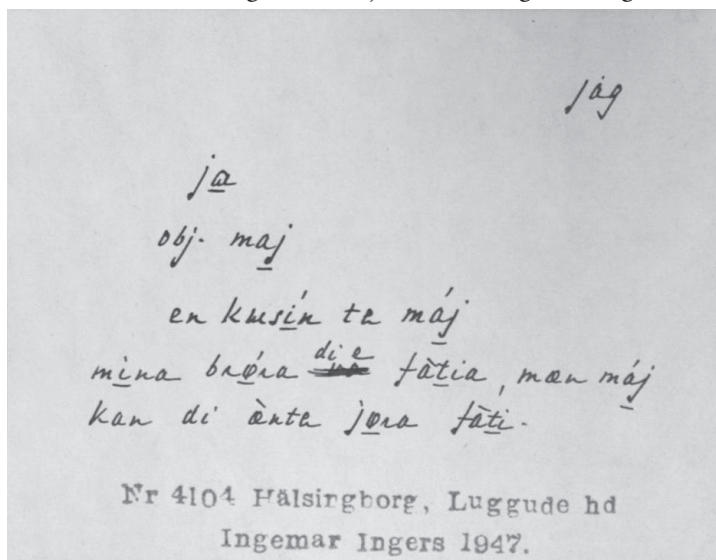 jag
ja̲
obj. ma̲j
en kɯsí̲n ta má̲j
mì̲na brǿ̲ra di e fàt̲ia, mæn má̲j
kan di ænta jø̲ra fàt̲i.
Nr 4104 Hälsingborg, Luggude hd
Ingemar Ingers 1947.